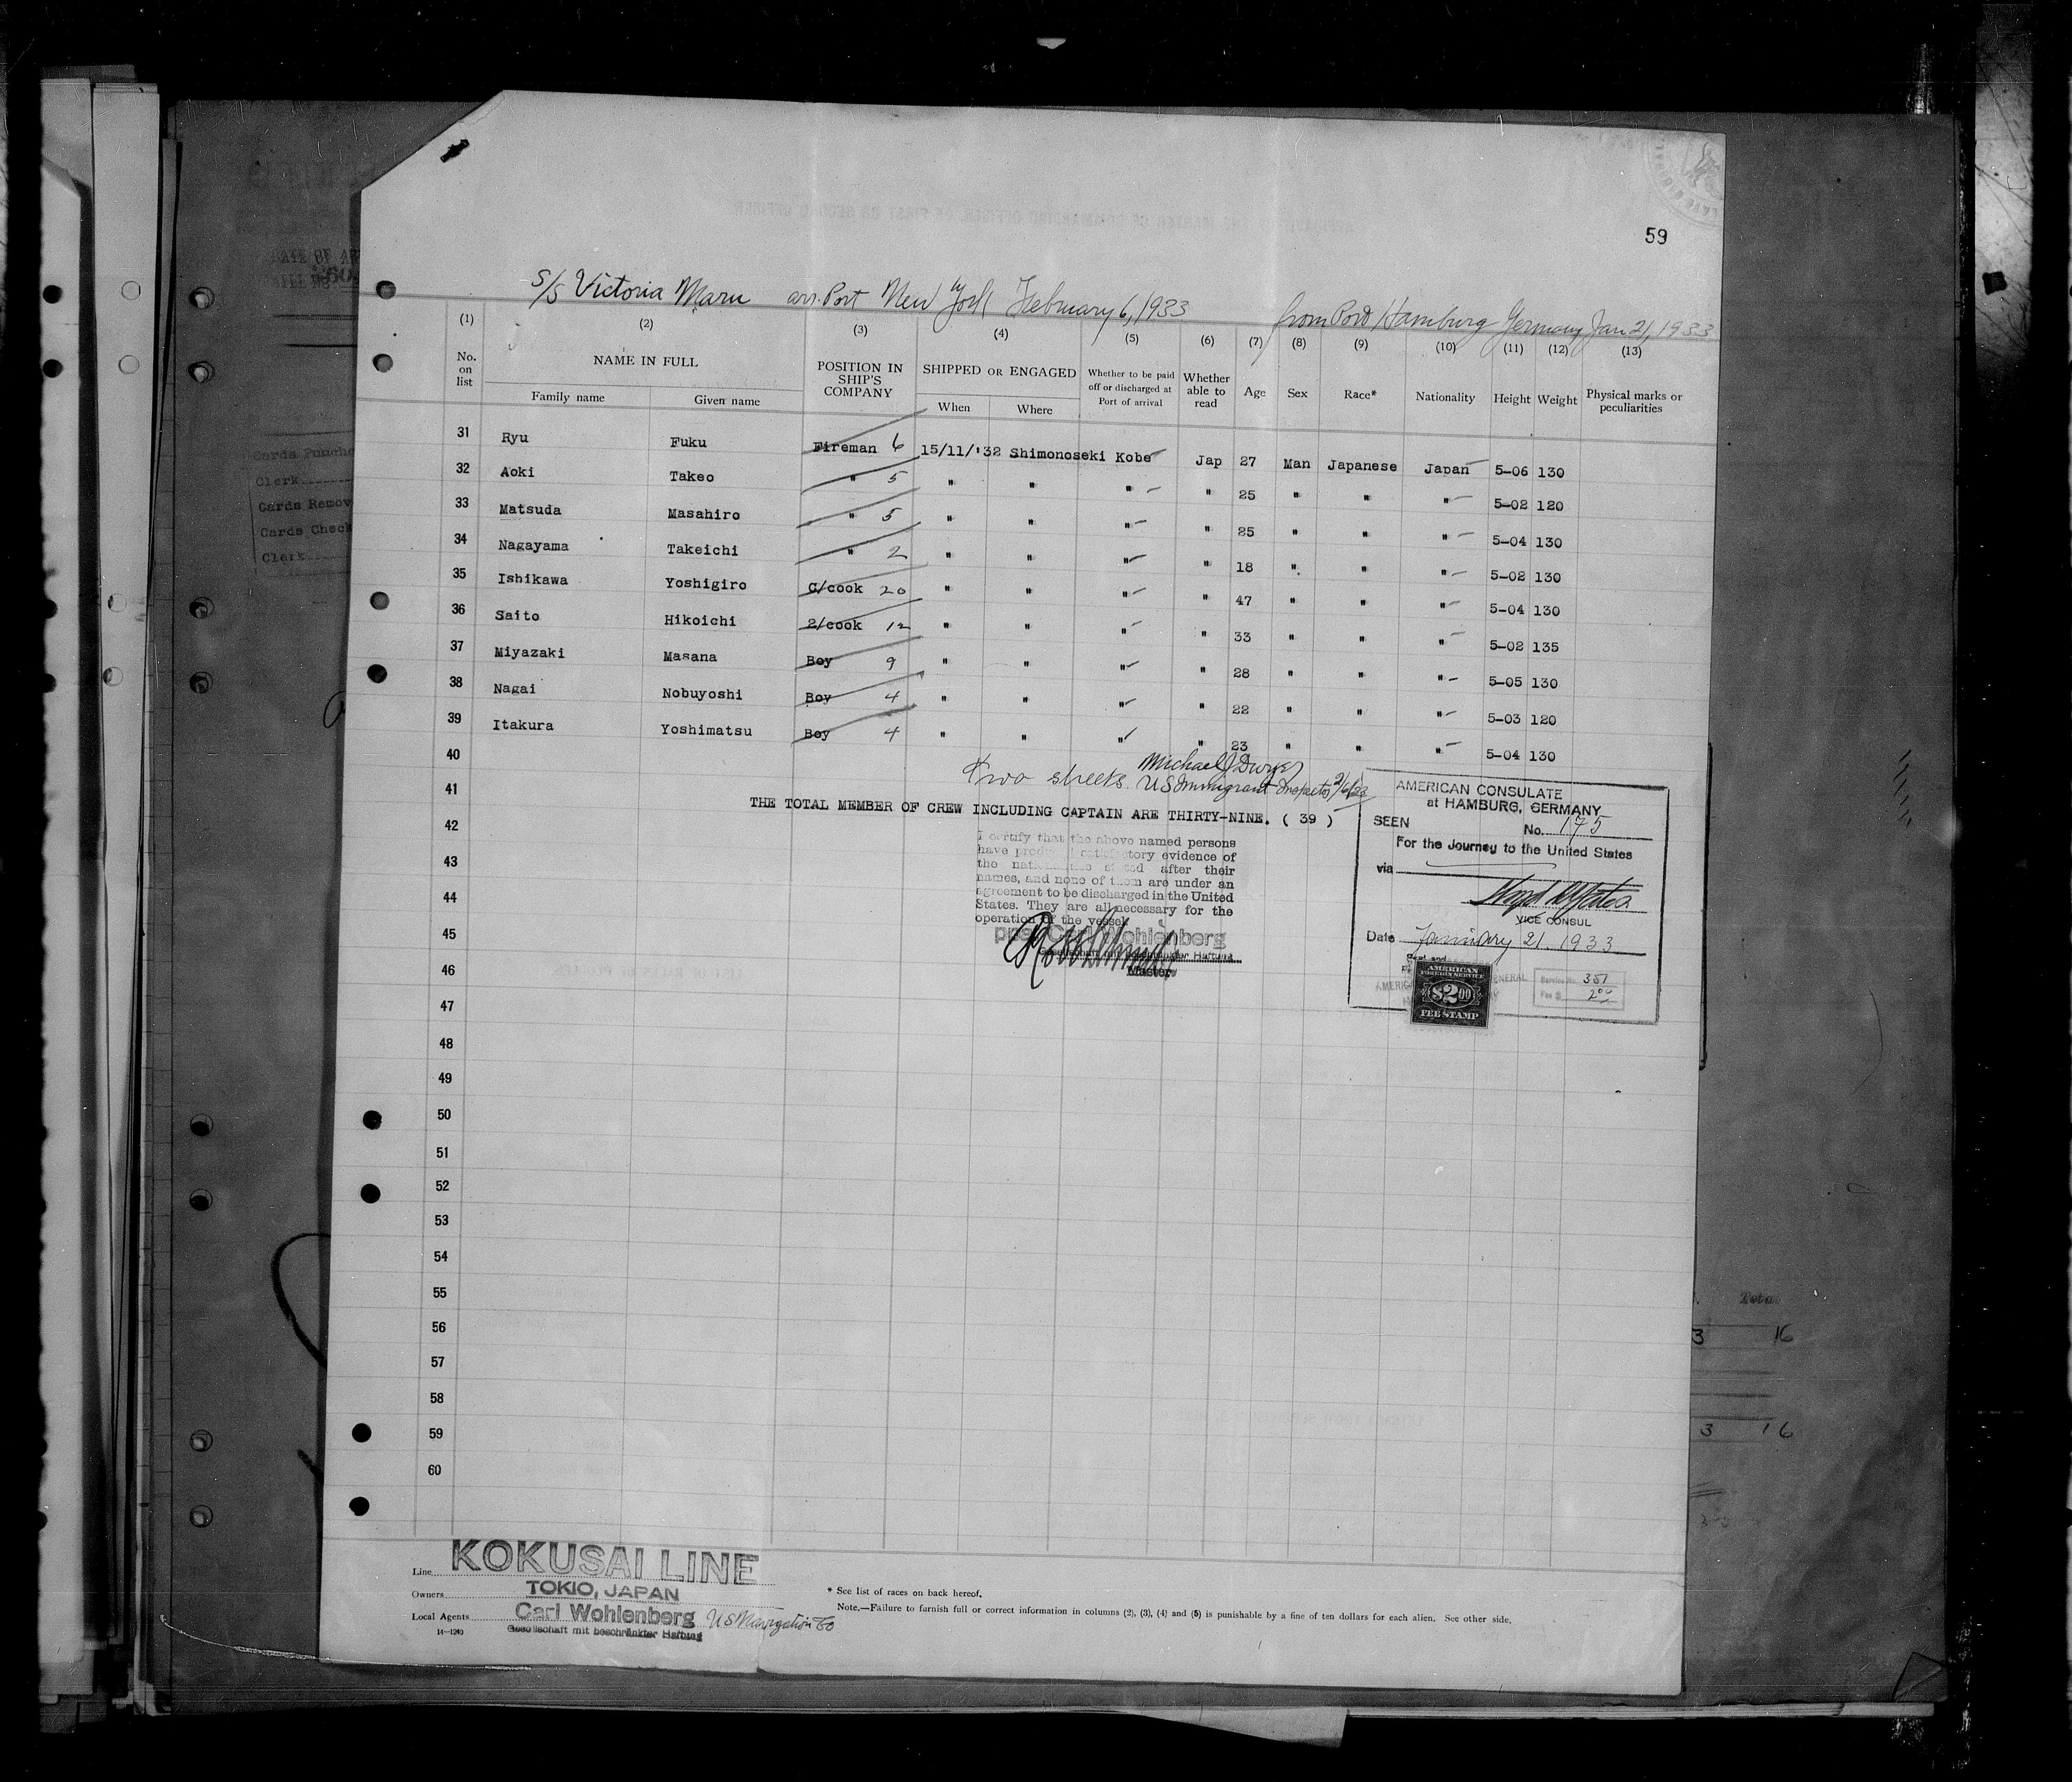 59
S/S Victoria Maru arr. Port New York February 6, 1933 from Port Hamburg Germany Jan 21, 1933
(1) (2) (3) (4) (5) (6) (7) (8) (9) (10) (11) (12) (13)
No. on list NAME IN FULL POSITION IN SHIP'S COMPANY SHIPPED OR ENGAGED Whether to be paid off or discharged at Port of arrival Whether able to read Age Sex Race* Nationality Height Weight Physical marks or peculiarities
Family name Given name When Where
31 Ryu Fuku Fireman 6 15/11/'32 Shimonoseki Kobe Jap 27 Man Japanese Japan 5-06 130
32 Aoki Takeo " 5 " " " " 25 " " " 5-02 120
33 Matsuda Masahiro " 5 " " " " 25 " " " 5-04 130
34 Nagayama Takeichi " 2 " " " " 18 " " " 5-02 130
35 Ishikawa Yoshigiro C/cook 20 " " " " 47 " " " 5-04 130
36 Saito Hikoichi 2/cook 12 " " " " 33 " " " 5-02 135
37 Miyazaki Masana Boy 9 " " " " 28 " " " 5-05 130
38 Nagai Nobuyoshi Boy 4 " " " " 22 " " " 5-03 120
39 Itakura Yoshimatsu Boy 4 " " " " 23 " " " 5-04 130
40
Michael J Dwyer
41 two sheets. US Immigrant Inspector 2/6/33
THE TOTAL MEMBER OF CREW INCLUDING CAPTAIN ARE THIRTY-NINE. ( 39 )
42
43
44
45
46
47
48
49
50
51
52
53
54
55
56
57
58
59
60
I certify that the above named persons
have produced satisfactory evidence of
the nationalities stated after their
names, and none of them are under an
agreement to be discharged in the United
States. They are all necessary for the
operation of the vessel.
ppa. Carl Wohlenberg
Gesellschaft mit beschränkter Haftung
Master
AMERICAN CONSULATE
at HAMBURG, GERMANY
SEEN No. 175
For the Journey to the United States
via
VICE CONSUL
Date January 21. 1933
AMERICAN
FOREIGN SERVICE
$2.00
FEE STAMP
Service No. 351
Fee $ 2.00
Line KOKUSAI LINE
Owners TOKIO, JAPAN
Local Agents Carl Wohlenberg US Navigation Co
Gesellschaft mit beschränkter Haftung
14-1240
* See list of races on back hereof.
Note.—Failure to furnish full or correct information in columns (2), (3), (4) and (5) is punishable by a fine of ten dollars for each alien. See other side.
Cards Punche
Clerk
Cards Remov
Cards Check
Clerk
Total
3 16
3 16